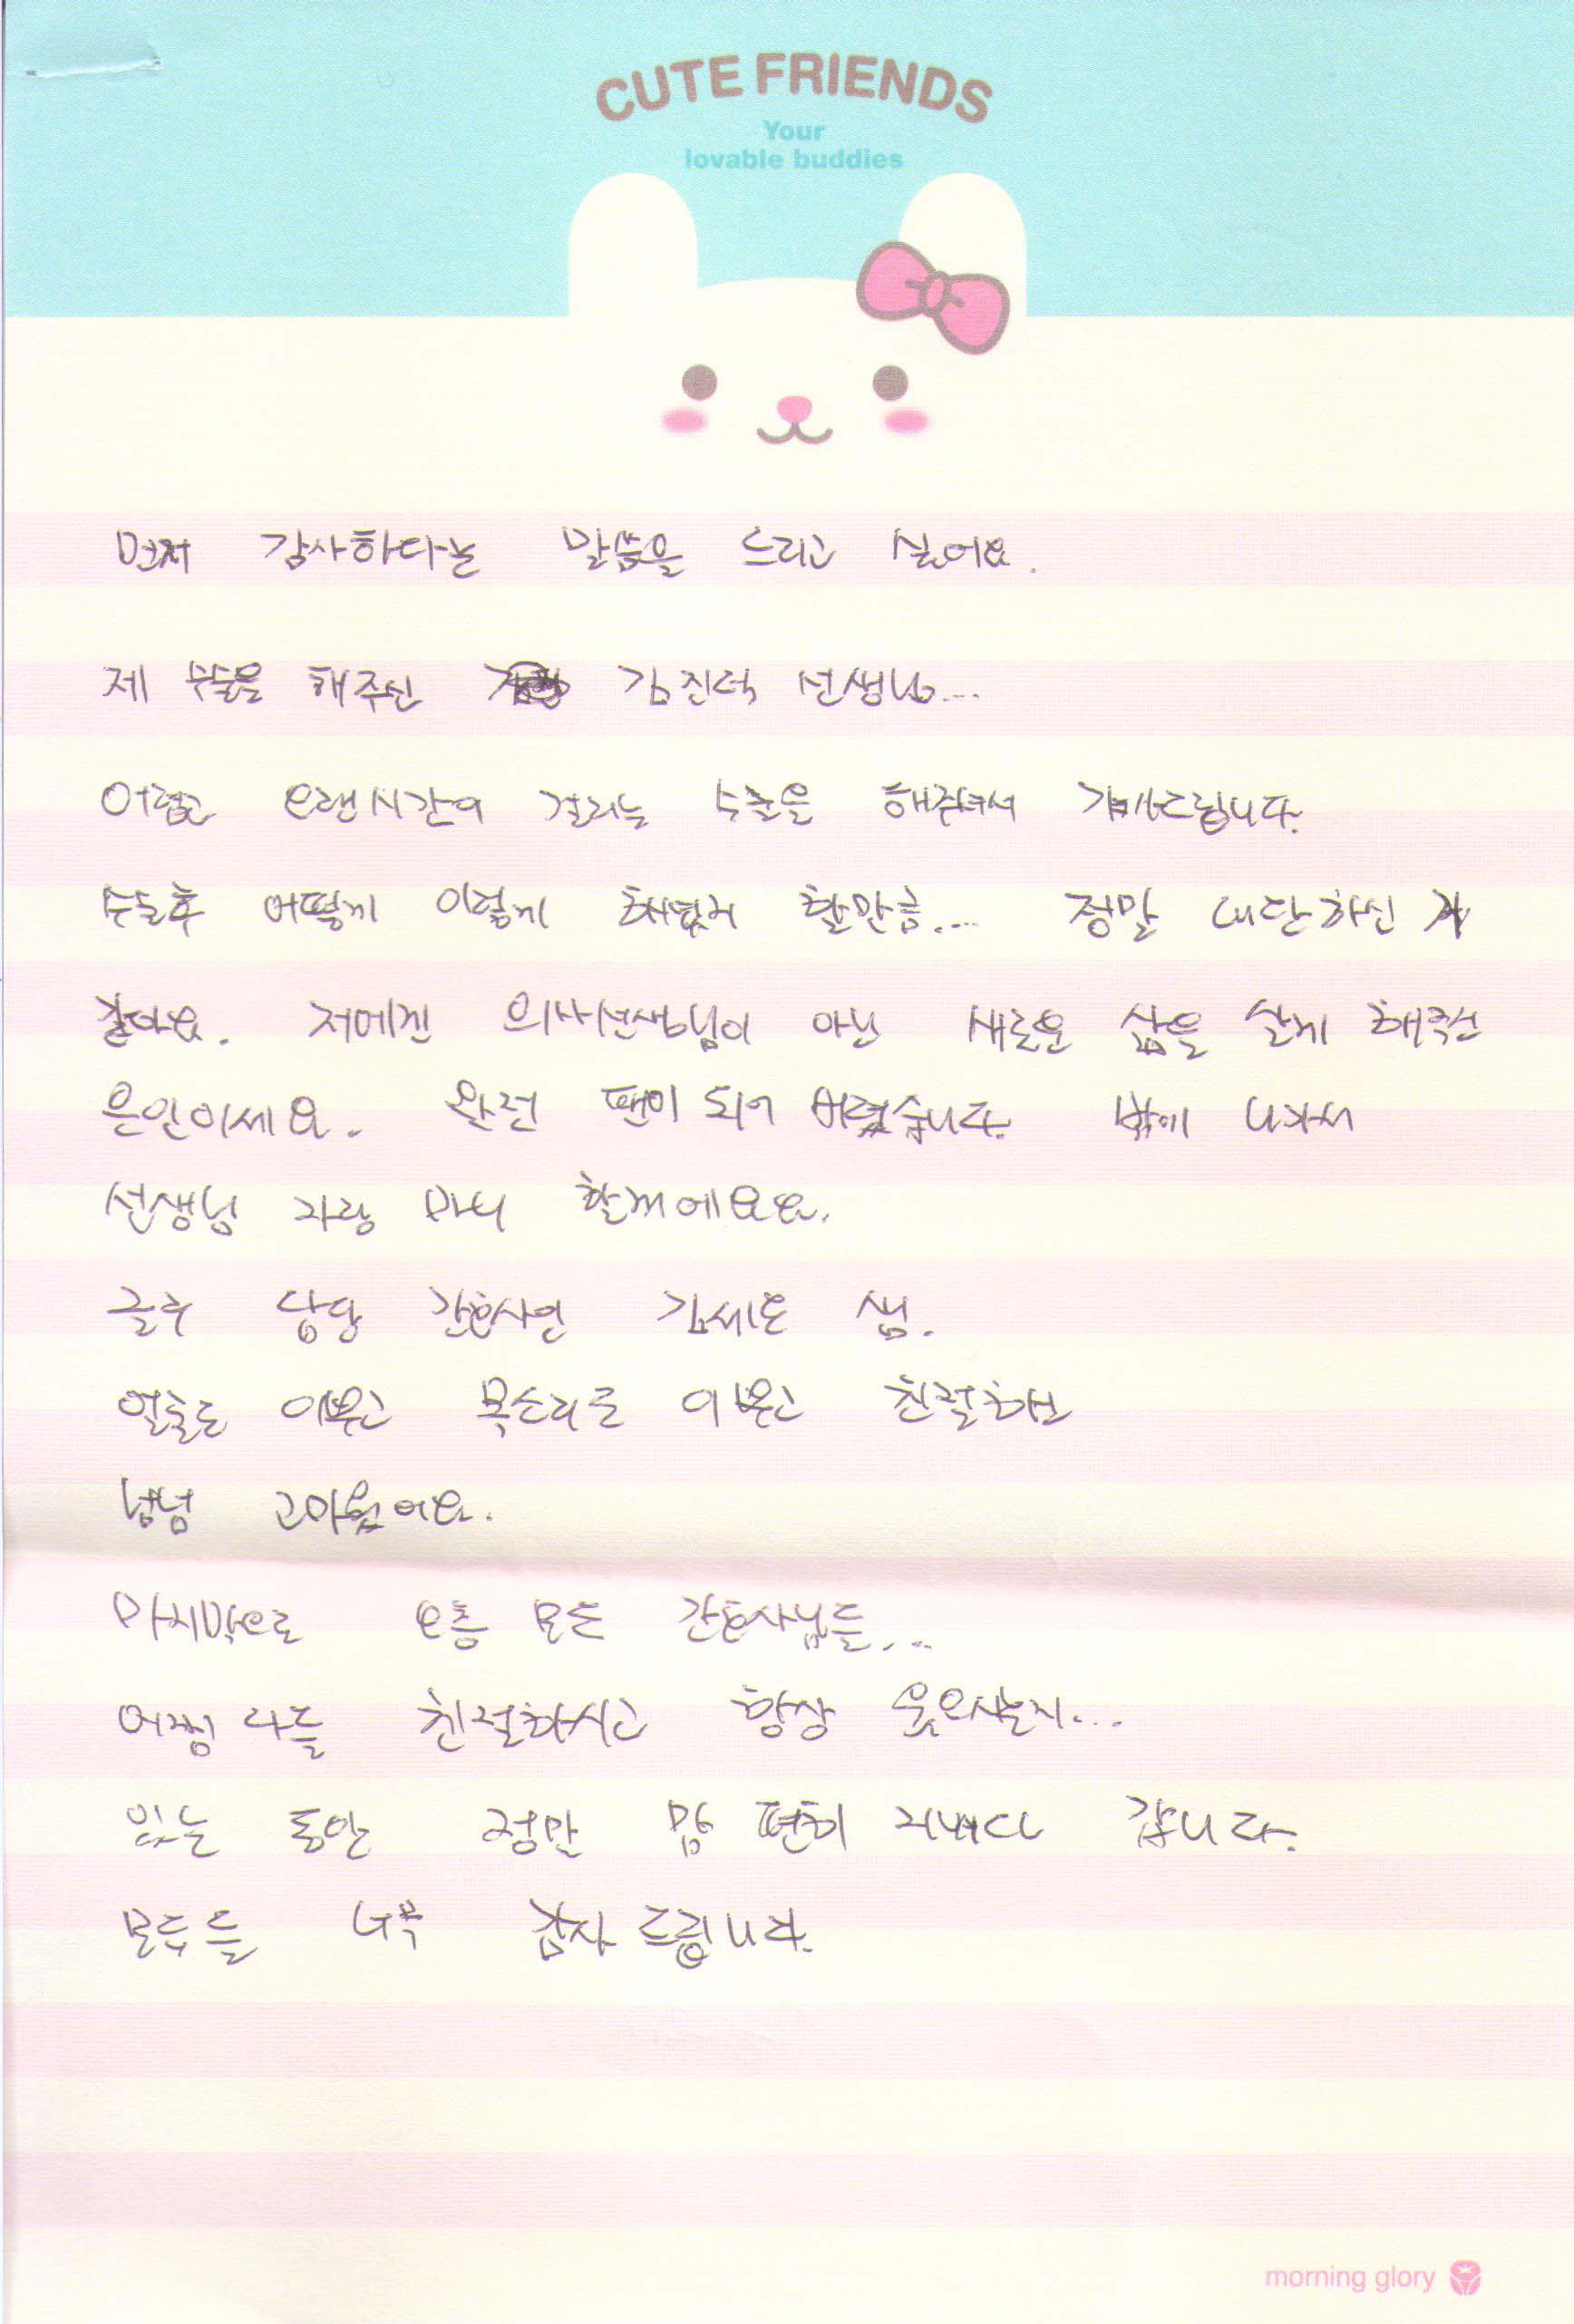 CUTE FRIENDS
Your
lovable buddies
먼저 감사하다는 말씀을 드리고 싶어요.
제 수술을 해주신 김진덕 선생님...
어렵고 오랜시간이 걸리는 수술을 해주셔서 감사드립니다.
수술후 어떻게 이렇게 할만큼.... 정말 대단하신 거
같아요. 저에겐 의사선생님이 아닌 새로운 삶을 살게 해주신
은인이세요. 완전 팬이 되어 버렸습니다. 밖에 나가서
선생님 자랑 마니 할께에요요.
글구 담당 간호사인 김세은 샘.
얼굴도 이쁘고 목소리도 이쁘고 친절하고
넘넘 고마웠어요.
마지막으로 5층 모든 간호사님들...
어쩜 다들 친절하시고 항상 웃으시는지...
있는 동안 정말 맘 편히 지내다 갑니다.
모두들 너무 감사 드립니다.
morning glory